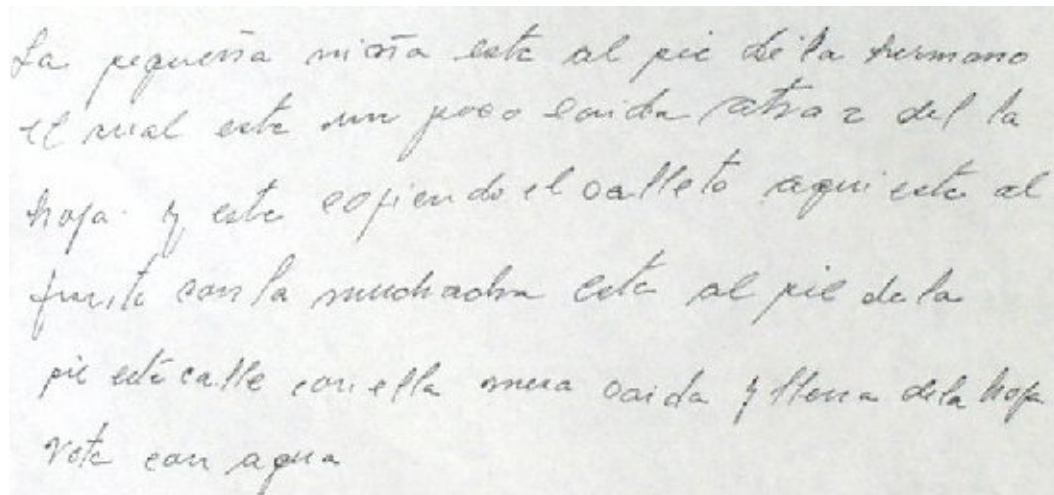 La pequeña niña esta al pie de la hermano
el cual esta un poco caida atraz del la
hoja y esta cogiendo el calleto aqui esta al
frente con la muchacha esta al pie de la
pie este calle con ella mesa caida y llena dela hoja
rota con agua